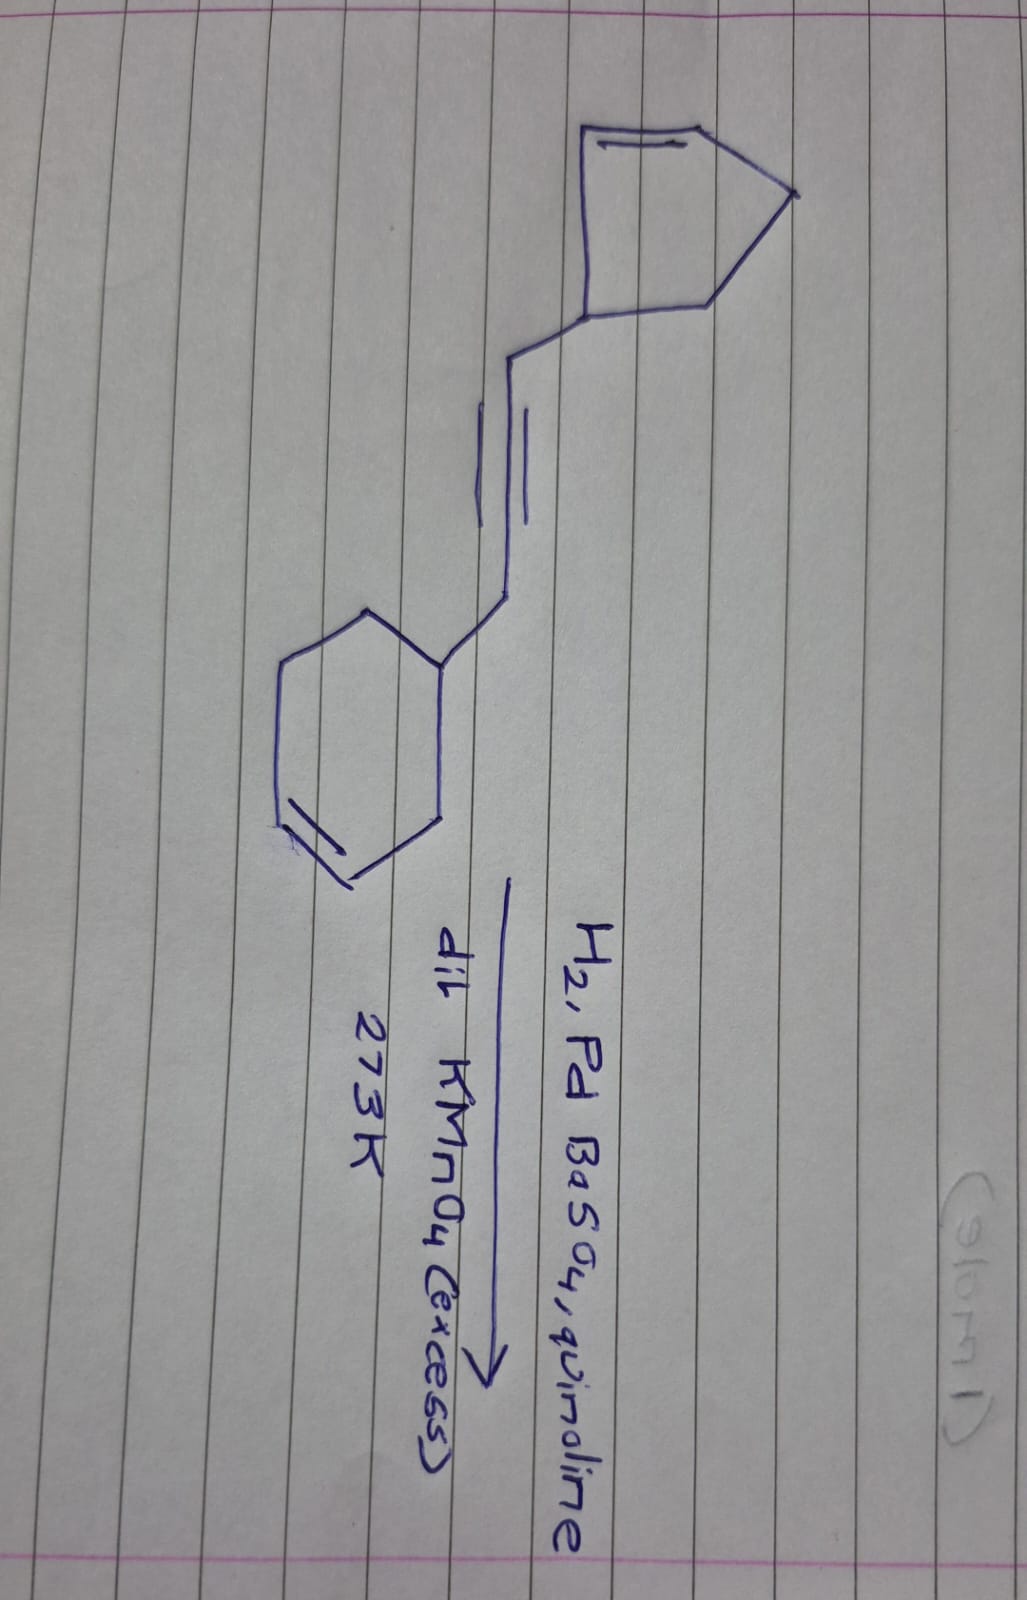 H2, Pd BaSO4, quinoline
dil KMnO4 (excess)
273K